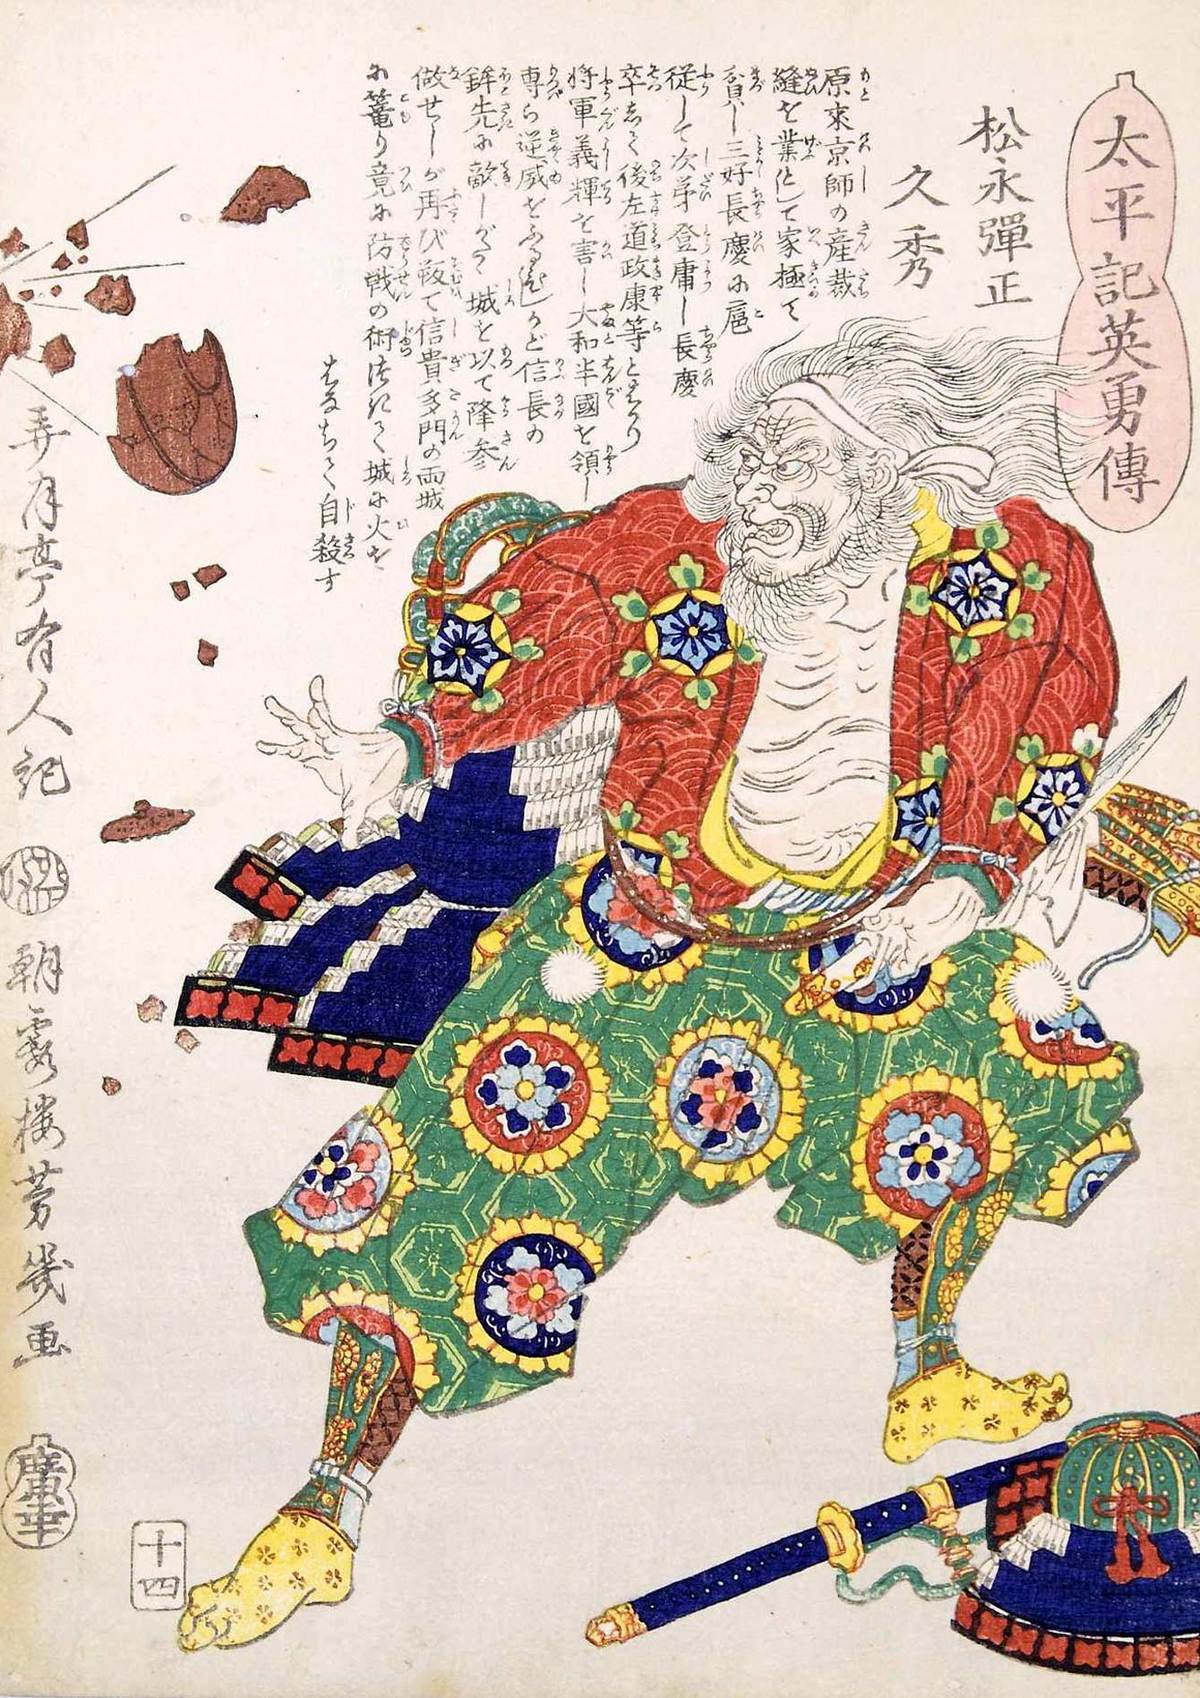 太平記英勇傳
松永彈正
久秀
原来京師の産裁
縫を業として家極て
貧し三好長慶に扈
従して次第登庸し長慶
卒して後左道政康等とはかり
将軍義輝を害し大和半國を領し
専ら逆威をふるひしかど信長の
鉾先に敵しがたく城を以て降参
做せしが再び叛て信貴多門の両城
に篭り竟に防戦の術つきて城に火を
はなちて自殺す
弄月亭有人記
朝霞楼芳幾画
廣華
十四